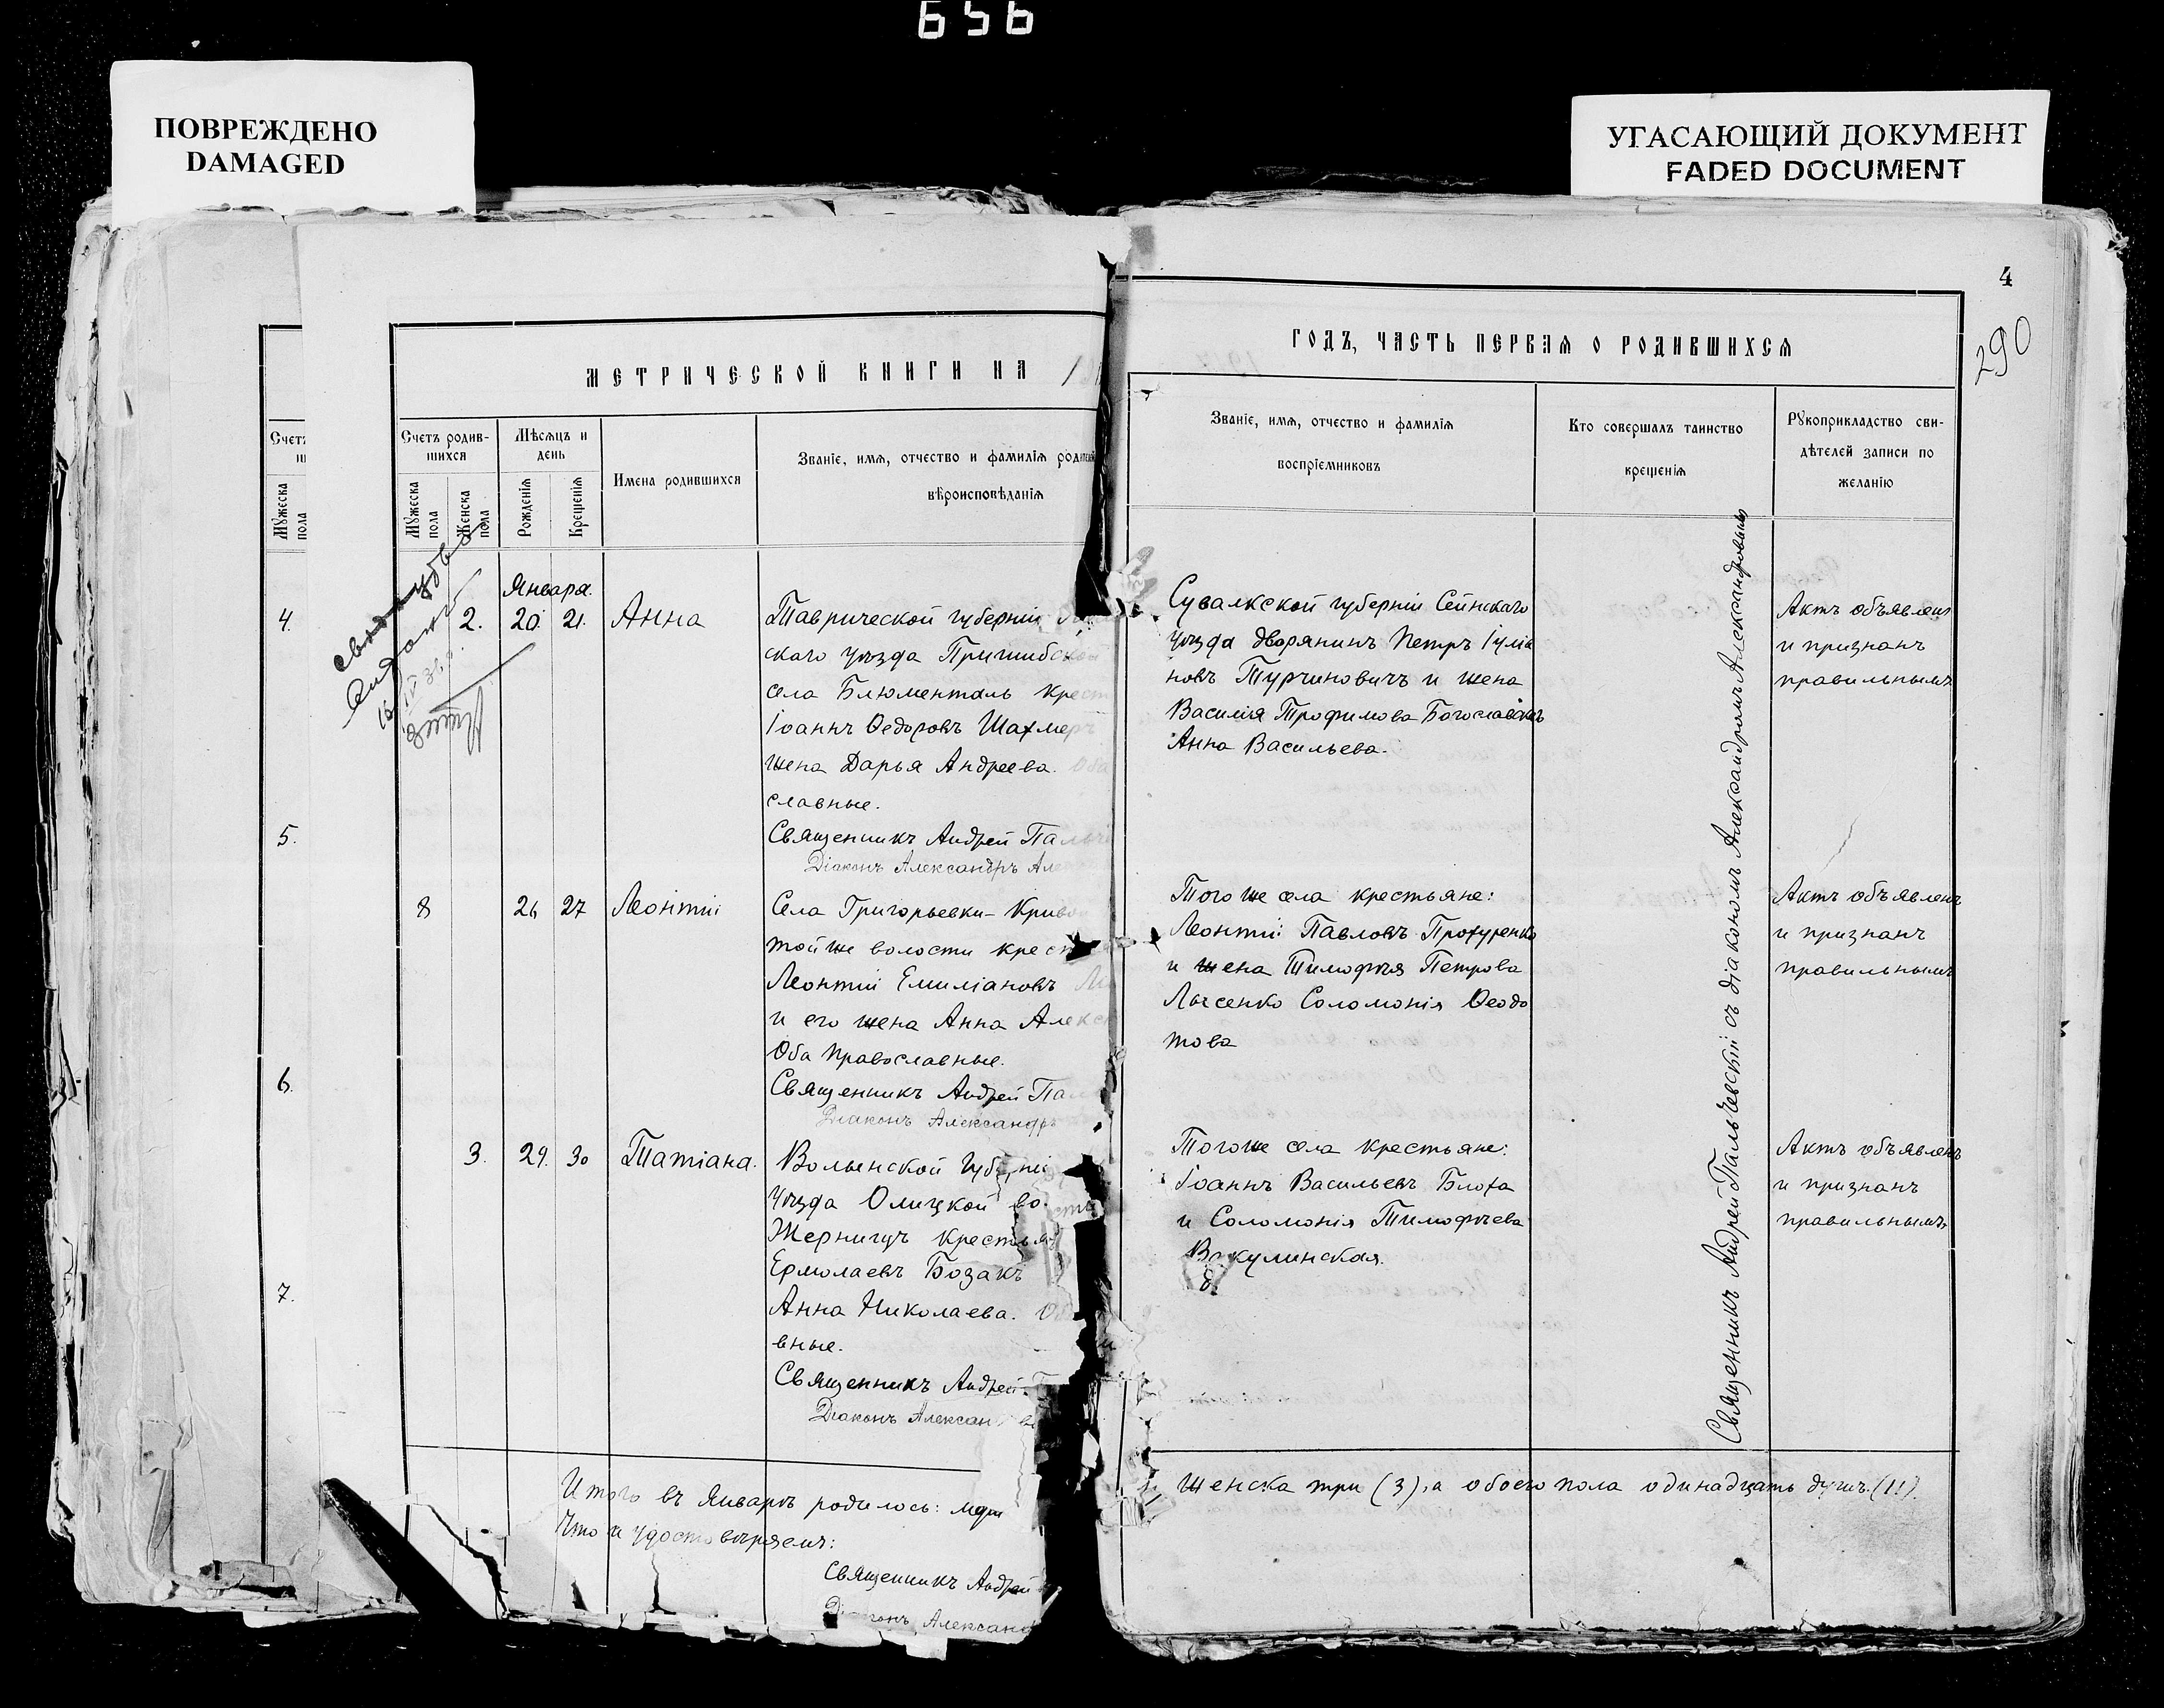 656
ПОВРЕЖДЕНО
DAMAGED
УГАСАЮЩИЙ ДОКУМЕНТ
FADED DOCUMENT
4
290
МЕТРИЧЕСКОЙ КНИГИ НА 1
ГОДЪ, ЧАСТЬ ПЕРВАЯ О РОДИВШИХСЯ
Счетъ родив-
шихся
Мужеска пола
Женска пола
Мѣсяцъ и
день
Рожденія
Крещенія
Имена родившихся
Званіе, имя, отчество и фамилія родителей
вѣроисповѣданія
Званіе, имя, отчество и фамилія
воспріемниковъ
Кто совершалъ таинство
крещенія
Рукоприкладство сви-
дѣтелей записи по
желанію
Счетъ
ш
Мужеска
пола
4.
5.
6.
7.
Января.
2. 20. 21. Анна
Таврической губерніи
скаго уѣзда Пришибской
села Блюменталь крест
Іоаннъ Ѳедоровъ Шахмер
жена Дарья Андреева. Оба
славные.
Священникъ Андрей Пальч
Діаконъ Александръ Але
Сувалкской губерніи Сейнскаго
уѣзда дворянинъ Петръ Іуліа
новъ Турчиновичъ и жена
Василія Трофимова Богославска
Анна Васильева.
Актъ объявленъ
и признанъ
правильнымъ
8 26 27 Леонтій
Села Григорьевки-Криво
той же волости крест
Леонтій Емиліановъ
и его жена Анна Алекс
Оба православные.
Священникъ Андрей Пал
Діаконъ Александръ
Того же села крестьяне:
Леонтій Павловъ Прохуренко
и жена Тимофѣя Петрова
Лысенко Соломонія Ѳеодо
това
Актъ объявленъ
и признанъ
правильнымъ
3. 29. 30 Татіана.
Волынской губерніи
уѣзда Олицкой во сти
Жерницъ крестья
Ермолаевъ Бозакъ
Анна Николаева. О
вные.
Священникъ Андрей П
Діаконъ Алексан
Того же села крестьяне:
Іоаннъ Васильевъ Блоха
и Соломонія Тимофѣева
Вакулинская.
Актъ объявленъ
и признанъ
правильнымъ
Священникъ Андрей Пальчевскій съ діакономъ Александромъ Александровымъ
Итого въ Январѣ родилось: муж
Что и удостовѣряемъ:
Священникъ Андрей
Діаконъ Александ
женска три (3), а обоего пола одинадцать душъ. (11).